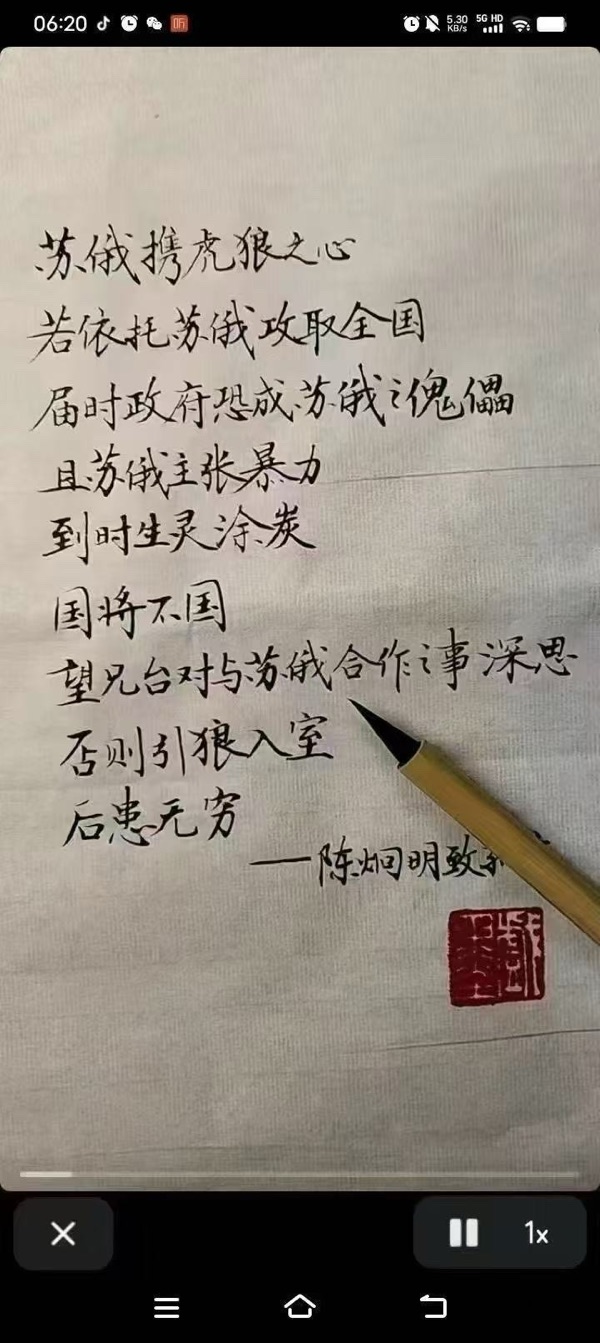 06:20
听
5.30 KB/s
5G HD
苏俄携虎狼之心
若依托苏俄攻取全国
届时政府恐成苏俄之傀儡
且苏俄主张暴力
到时生灵涂炭
国将不国
望兄台对与苏俄合作之事深思
否则引狼入室
后患无穷
——陈炯明致
1x